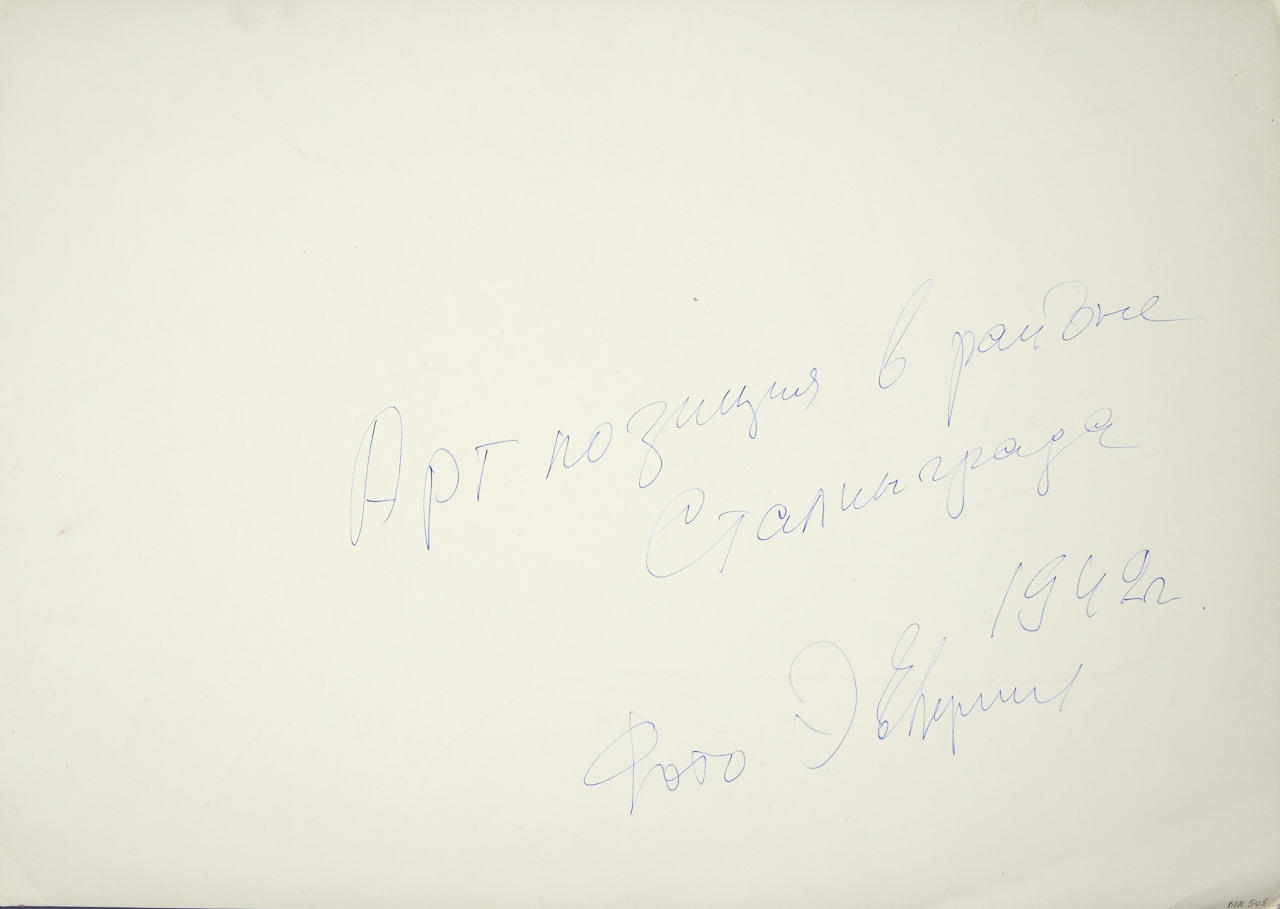 Арт позиция в районе
Сталинграда
1942г.
Фото Э Евзерихин
BEN 508